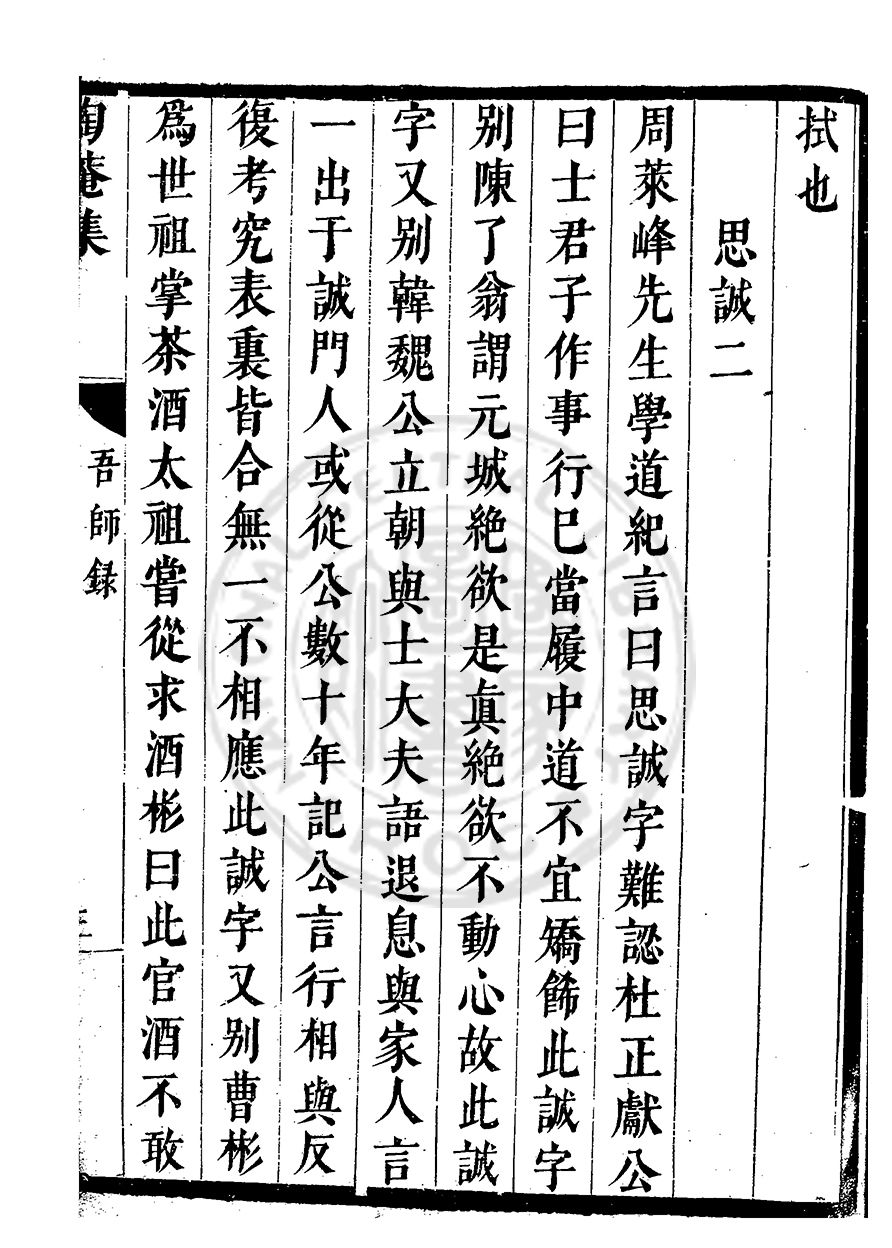 拭也
思誠二
周萊峰先生學道紀言曰思誠字難認杜正獻公
曰士君子作事行已當履中道不宜矯飾此誠字
别陳了翁謂元城絶欲是眞絶欲不動心故此誠
字又别韓魏公立朝與士大夫語退息與家人言
一出于誠門人或從公數十年記公言行相與反
復考究表裏皆合無一不相應此誠字又别曹彬
爲世祖掌茶酒太祖嘗從求酒彬曰此官酒不敢
陶菴集
吾師録
三